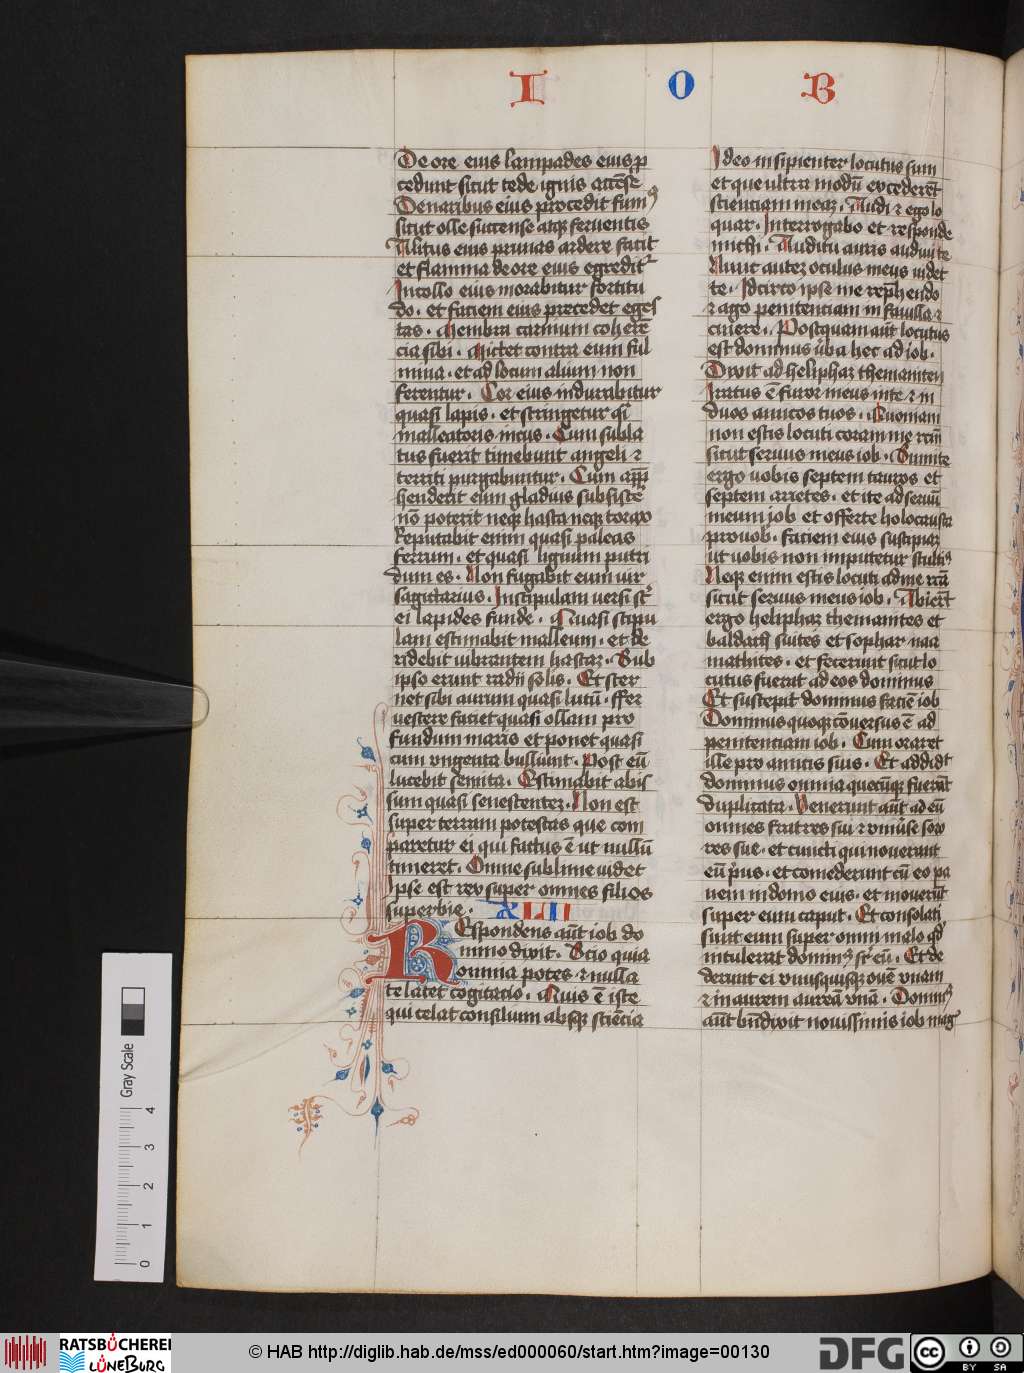 I O B
De ore eius lampades eius p̱
cedunt sicut tede ignis accēse
De naribus eius procedit fumꝰ
sicut olle succense atqꝫ feruentis
Alitus eius prunas ardere facit
et flamma de ore eius egreditᷣ
In collo eius morabitur fortitu
do · et faciem eius precedet eges
tas · Membra carnium coherē
cia sibi · Mittet contra eum ful
mina · et ad locum alium non
ferentur · Cor eius indurabitur
quasi lapis · et stringetur q̄i
malleatoris incus · Cum subla
tus fuerit timebunt angeli ⁊
territi purgabuntur · Cum app̄
henderit eum gladius subsistē
nō poterit neqꝫ hasta neqꝫ torax
Reputabit enim quasi paleas
ferrum · et quasi lignum putri
dum es · Non fugabit eum uir
sagittarius · In stipulam uersi st̄
ei lapides funde · Quasi stipu
lam estimabit malleum · et de
ridebit uibrantem hastaꝫ · Sub
ipso erunt radij solis · Et ster
net sibi aurum quasi lutū · ffer
uescere faciet quasi ollam pro
fundum maris et ponet quasi
cum vngenta bulliunt · Post eū
lucebit semita · Estimabit abis
sum quasi senescenteꝫ · Non est
super terram potestas que com
paretur ei qui factus ē ut nullū
timeret · Omne sublime uidet
Ipse est rex super omnes filios
superbie · XLII
Respondens aūt iob do
mino dixit · Scio quia
omnia potes ⁊ nulla
te latet cogitacio · Quis ē iste
qui celat consilium absqꝫ sciēcia
Ideo insipienter locutus sum
et que ultra modū excederēt
scienciam meaꝫ · Audi ⁊ ego lo
quar · Interrogabo et responde
michi · Auditu auris audiui te
Nunc auteꝫ oculus meus uidet
te · Idcirco ipse me rep̄hendo
⁊ ago penitenciam in fauilla ⁊
cinere · Postquam aūt locutus
est dominus ūba hec ad iob ·
Dixit ad heliphaz themaniten
Iratus ē furor meus in te ⁊ in
duos amicos tuos · Quoniam
non estis locuti coram me rc̄m
sicut seruus meus iob · Sumite
ergo uobis septem tauros et
septem arietes · et ite ad seruū
meum iob et offerte holocausta
pro uob · faciem eius suscipiaꝫ
ut uobis non imputetur stulti
Neqꝫ enim estis locuti ad me rc̄a
sicut seruus meus iob · Abierūt
ergo heliphaz themanites et
baldath suites et sophar naa
mathites · et fecerunt sicut lo
cutus fuerat ad eos dominus
Et suscepit dominus faciē iob
Dominus quoqꝫ cōuersus ē ad
penitenciam iob · Cum oraret
ille pro amicis suis · Et addidt
dominus omnia quecūqꝫ fuerāt
duplicata · Venerunt aūt ad eū
omnes fratres sui ⁊ vniūse soro
res sue · et cuncti qui nouerant
eū p̄us · et comederunt cū eo pa
nem in domo eius · et mouerūt
super eum caput · Et consolati
sunt eum super omni malo qd̄
intulerat dominꝰ sr̄ eū · Et de
derunt ei vnusquisqꝫ ouē vnam
⁊ in aurem aureā vnā · Dominꝰ
aūt bn̄dixit nouissimis iob mag
Gray Scale
0 1 2 3 4
RATSBÜCHEREI
LÜNEBURG
© HAB http://diglib.hab.de/mss/ed000060/start.htm?image=00130
DFG
cc BY SA